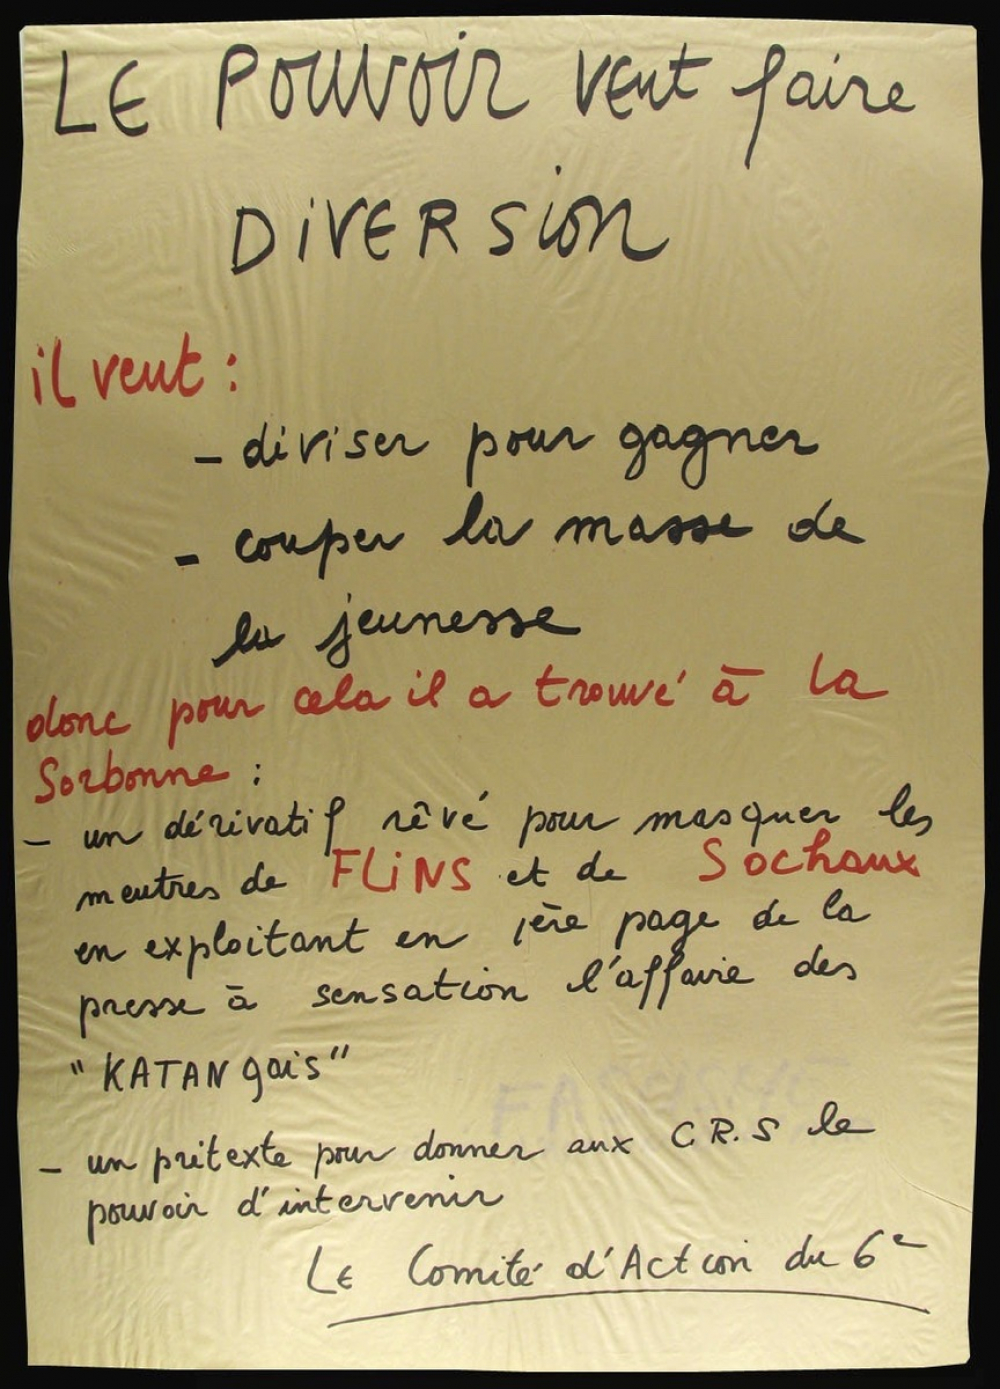 LE POUVOIR VEUT faire
DiVERSion
il veut :
- diviser pour gagner
- couper la masse de
la jeunesse
donc pour cela il a trouvé à la
Sorbonne :
- un dérivatif rêvé pour masquer les
meutres de FLiNS et de Sochaux
en exploitant en 1ère page de la
presse à sensation l'affaire des
"KATANgais"
- un prétexte pour donner aux C R.S le
pouvoir d'intervenir
LE Comité d'Action du 6e